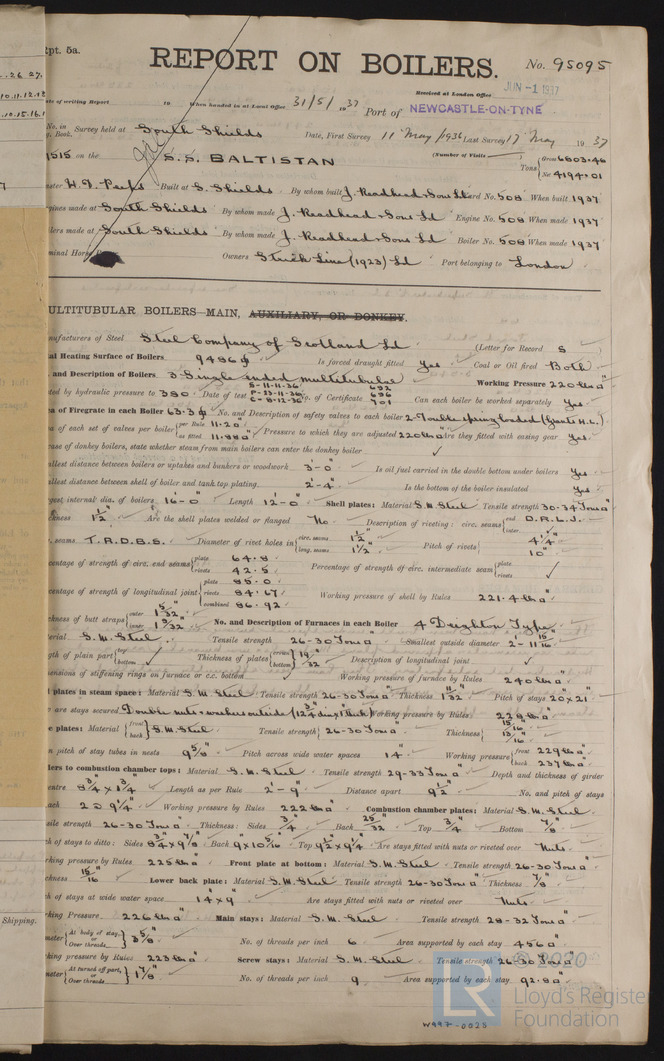 Rpt. 5a.
REPORT ON BOILERS.
No. 95095
Received at London Office JUN -1 1937
Date of writing Report 19 When handed in at Local Office 31/5/1937 Port of NEWCASTLE-ON-TYNE
No. in Survey held at South Shields Date, First Survey 11 May /1936 Last Survey 17 May 1937
Book.
1515 on the S.S. BALTISTAN (Number of Visits) Tons Gross 6803.46 Net 4194.01
Built at S. Shields By whom built J. Readhead & Sons Ld Yard No. 508 When built 1937
Engines made at South Shields By whom made J. Readhead & Sons Ld Engine No. 508 When made 1937
Boilers made at South Shields By whom made J. Readhead & Sons Ld Boiler No. 508 When made 1937
Owners Strick Line (1923) Ld Port belonging to London
MULTITUBULAR BOILERS—MAIN, AUXILIARY, OR DONKEY.
Manufacturers of Steel Steel Company of Scotland Ld (Letter for Record S)
Total Heating Surface of Boilers Is forced draught fitted Yes Coal or Oil fired Both
No. and Description of Boilers 3 Single ended multitubular Working Pressure 220 lbs
Tested by hydraulic pressure to 380 Date of test No. of Certificate 692 696 701 Can each boiler be worked separately Yes
Area of Firegrate in each Boiler 63.3 No. and Description of safety valves to each boiler 2-Double spring loaded
Area of each set of valves per boiler per Rule 11.20 as fitted 11.88 Pressure to which they are adjusted 220 lbs Are they fitted with easing gear Yes
In case of donkey boilers, state whether steam from main boilers can enter the donkey boiler
Smallest distance between boilers or uptakes and bunkers or woodwork 3'-0" Is oil fuel carried in the double bottom under boilers Yes
Smallest distance between shell of boiler and tank top plating 2'-4" Is the bottom of the boiler insulated Yes
Largest internal dia. of boilers 16'-0" Length 12'-0" Shell plates: Material S.M. Steel Tensile strength 30-34 Tons
Thickness 1½" Are the shell plates welded or flanged No Description of riveting: circ. seams end D.R.L.J. inter.
long. seams T.R.D.B.S. Diameter of rivet holes in circ. seams 1½" long. seams 1½" Pitch of rivets 4¼" 10"
Percentage of strength of circ. end seams plate 64.8 rivets 42.5 Percentage of strength of circ. intermediate seam plate rivets
Percentage of strength of longitudinal joint plate 85.0 rivets 84.67 combined 86.92 Working pressure of shell by Rules 221.4 lbs
Thickness of butt straps outer 1 5/32" inner 1 9/32" No. and Description of Furnaces in each Boiler 4 Deighton Type
Material S.M. Steel Tensile strength 26-30 Tons Smallest outside diameter 2'-11 15/16"
Length of plain part top bottom Thickness of plates crown bottom 19/32" Description of longitudinal joint
Dimensions of stiffening rings on furnace or c.c. bottom Working pressure of furnace by Rules 240 lbs
End plates in steam space: Material S.M. Steel Tensile strength 26-30 Tons Thickness 1 11/32" Pitch of stays 20" x 21"
How are stays secured Double nuts & washers outside Working pressure by Rules
Tube plates: Material front back S.M. Steel Tensile strength 26-30 Tons Thickness 15/16" 13/16"
Mean pitch of stay tubes in nests 9⅝" Pitch across wide water spaces 14" Working pressure front 229 lbs back 237 lbs
Girders to combustion chamber tops: Material S.M. Steel Tensile strength 29-33 Tons Depth and thickness of girder
at centre 8¾" x 1¾" Length as per Rule 2'-9" Distance apart 9½" No. and pitch of stays
in each 2 @ 9¼" Working pressure by Rules 222 lbs Combustion chamber plates: Material S.M. Steel
Tensile strength 26-30 Tons Thickness: Sides ¾" Back 25/32" Top ¾" Bottom ⅞"
Pitch of stays to ditto: Sides 8¾" x 9⅞" Back 9" x 10 5/16" Top 9½" x 9¼" Are stays fitted with nuts or riveted over Nuts
Working pressure by Rules 225 lbs Front plate at bottom: Material S.M. Steel Tensile strength 26-30 Tons
Thickness 15/16" Lower back plate: Material S.M. Steel Tensile strength 26-30 Tons Thickness ⅞"
Pitch of stays at wide water space 14" x 9" Are stays fitted with nuts or riveted over Nuts
Working Pressure 226 lbs Main stays: Material S.M. Steel Tensile strength 28-32 Tons
Diameter At body of stay, or Over threads 3⅝" No. of threads per inch 6 Area supported by each stay 456
Working pressure by Rules 223 lbs Screw stays: Material S.M. Steel Tensile strength 26-30 Tons
Diameter At turned off part, or Over threads 1⅞" No. of threads per inch 9 Area supported by each stay 92.8
© 2020
Lloyd's Register
Foundation
W497-0025
Shipping.